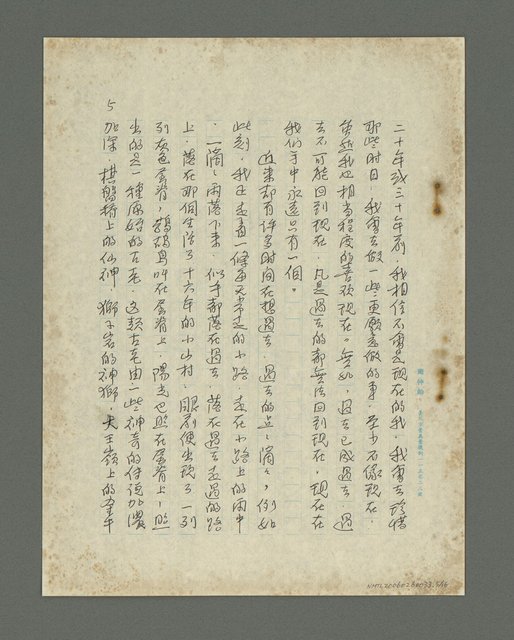 二十年或三十年前，我相信不會是現在的我，我會去珍惜
那些時日，我會去做一些更願意做的事，至少不像現在，
雖然我也相當程度的喜歡現在。無如，過去已成過去，過
去不可能回到現在，凡是過去的都無法回到現在，現在在
我們手中永遠只有一個。
近來却有許多時间在想過去，過去的点点滴滴，例如
此刻，我正走着一條每天常走的小路，走在小路上的雨中
，一滴一滴雨落下來，似乎都落在過去，落在過去走過的路
上，落在那個生活了十六年的小山村，眼前便出現了一列
列灰色屋脊，鷓鴣鳥叫在屋脊上，陽光也照在屋脊上，照
出的是一種原始的古老，這類古老由一些神奇的傳說加濃
加深，棋盤桥上的仙神，獅子岩的神獅，天王嶺上的牽牛
5
NMTL20060260033.5/16